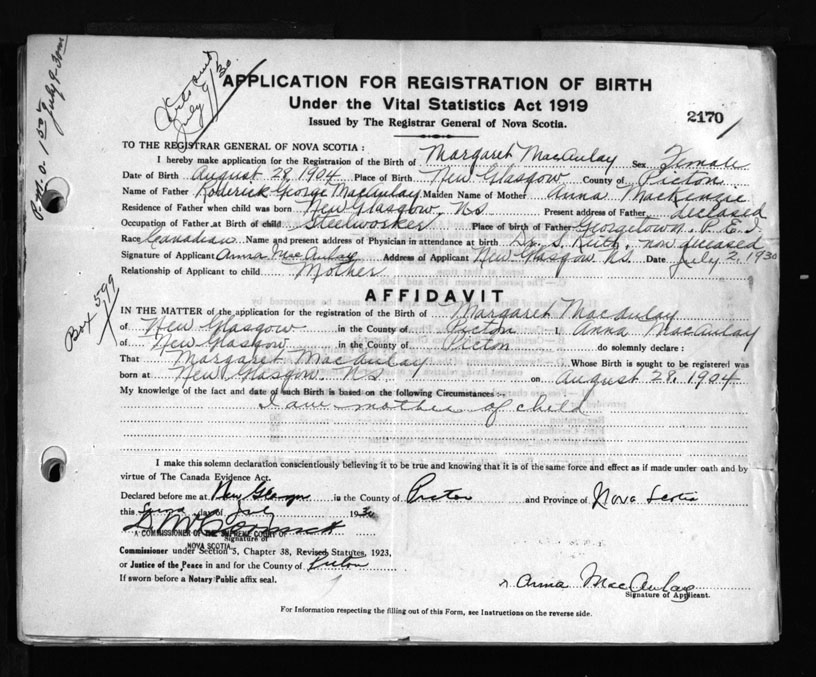 July 9/30
P.M.O. 1.50
July 9-30
APPLICATION FOR REGISTRATION OF BIRTH
Under the Vital Statistics Act 1919
2170
Issued by The Registrar General of Nova Scotia.
TO THE REGISTRAR GENERAL OF NOVA SCOTIA :
I hereby make application for the Registration of the Birth of Margaret MacAulay Sex Female
Date of Birth August 28, 1904 Place of Birth New Glasgow County of Picton
Name of Father Roderick George MacAulay Maiden Name of Mother Anna MacKenzie
Residence of Father when child was born New Glasgow, N.S. Present address of Father deceased
Occupation of Father at Birth of child Steelworker Place of birth of Father Georgetown, P.E.I.
Race Canadian Name and present address of Physician in attendance at birth Dr. S. Keith, now deceased
Signature of Applicant Anna MacAulay Address of Applicant New Glasgow N.S. Date July 2, 1930
Relationship of Applicant to child Mother
AFFIDAVIT
Box 599
IN THE MATTER of the application for the registration of the Birth of Margaret MacAulay
of New Glasgow in the County of Picton I, Anna MacAulay
of New Glasgow in the County of Picton do solemnly declare :
That Margaret MacAulay Whose Birth is sought to be registered was
born at New Glasgow, N.S. on August 28, 1904
My knowledge of the fact and date of such Birth is based on the following Circumstances :-
I am mother of child
I make this solemn declaration conscientiously believing it to be true and knowing that it is of the same force and effect as if made under oath and by
virtue of The Canada Evidence Act.
Declared before me at New Glasgow in the County of Picton and Province of Nova Scotia
this second day of July 1930
A COMMISSIONER OF THE SUPREME COURT OF
NOVA SCOTIA
Signature of
Commissioner under Section 5, Chapter 38, Revised Statutes, 1923,
or Justice of the Peace in and for the County of Picton
If sworn before a Notary Public affix seal.
Anna MacAulay
Signature of Applicant.
For Information respecting the filling out of this Form, see Instructions on the reverse side.